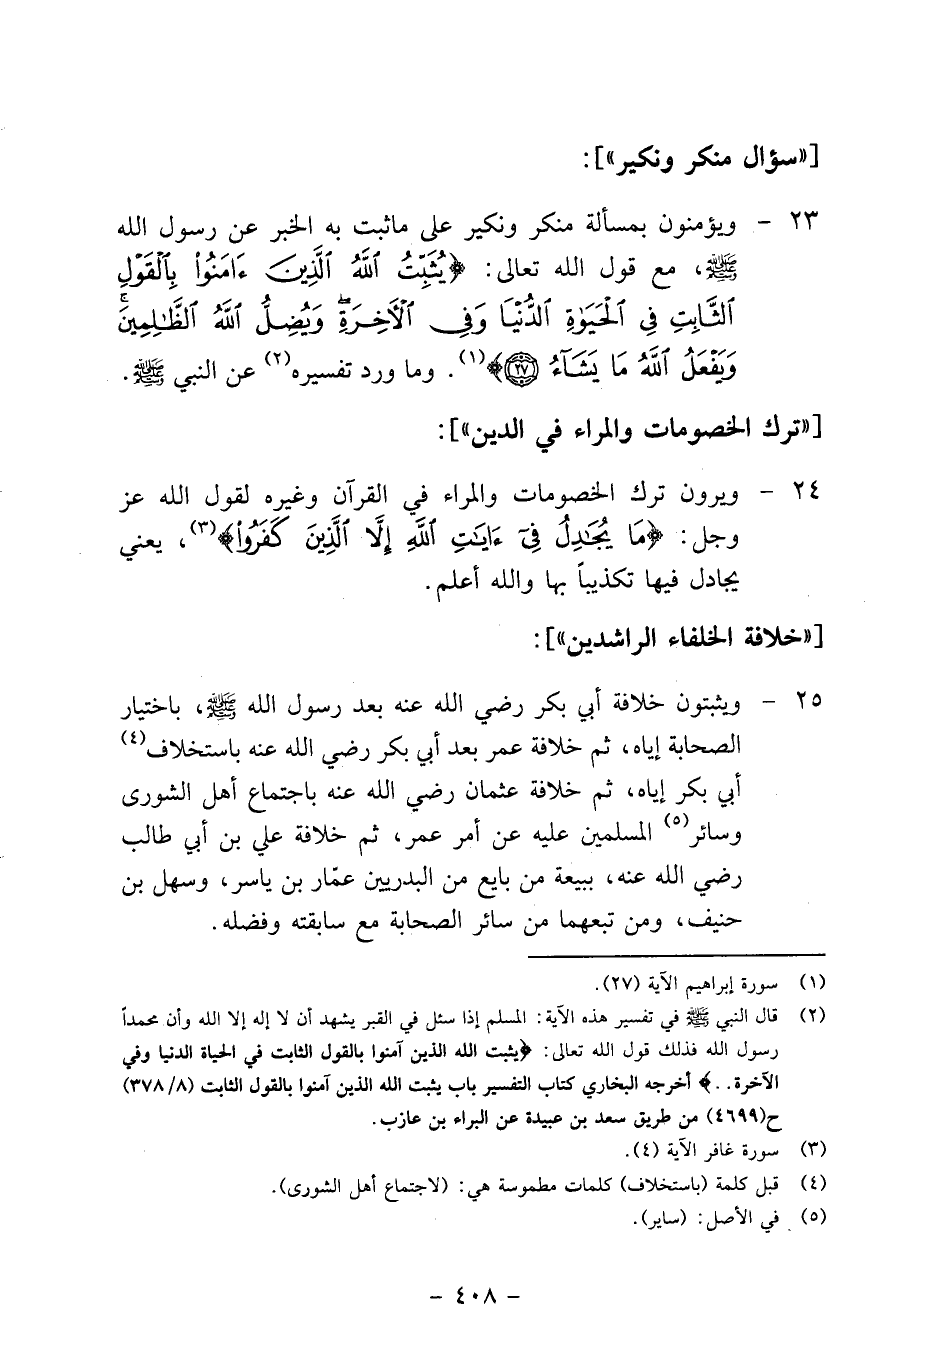 [«سؤال منكر ونكير»]:
٢٣ - ويؤمنون بمسألة منكر ونكير على ماثبت به الخبر عن رسول الله
ﷺ، مع قول الله تعالى: ﴿يُثَبِّتُ ٱللَّهُ ٱلَّذِينَ ءَامَنُواْ بِٱلْقَوْلِ
ٱلثَّابِتِ فِي ٱلْحَيَوٰةِ ٱلدُّنْيَا وَفِي ٱلْأٓخِرَةِۖ وَيُضِلُّ ٱللَّهُ ٱلظَّٰلِمِينَۚ
وَيَفْعَلُ ٱللَّهُ مَا يَشَآءُ ۝٢٧﴾(١). وما ورد تفسيره(٢) عن النبي ﷺ.
[«ترك الخصومات والمراء في الدين»]:
٢٤ - ويرون ترك الخصومات والمراء في القرآن وغيره لقول الله عز
وجل: ﴿مَا يُجَٰدِلُ فِيٓ ءَايَٰتِ ٱللَّهِ إِلَّا ٱلَّذِينَ كَفَرُواْ﴾(٣)، يعني
يجادل فيها تكذيباً بها والله أعلم.
[«خلافة الخلفاء الراشدين»]:
٢٥ - ويثبتون خلافة أبي بكر رضي الله عنه بعد رسول الله ﷺ، باختيار
الصحابة إياه، ثم خلافة عمر بعد أبي بكر رضي الله عنه باستخلاف(٤)
أبي بكر إياه، ثم خلافة عثمان رضي الله عنه باجتماع أهل الشورى
وسائر(٥) المسلمين عليه عن أمر عمر، ثم خلافة علي بن أبي طالب
رضي الله عنه، ببيعة من بايع من البدريين عمّار بن ياسر، وسهل بن
حنيف، ومن تبعهما من سائر الصحابة مع سابقته وفضله.
(١) سورة إبراهيم الآية (٢٧).
(٢) قال النبي ﷺ في تفسير هذه الآية: المسلم إذا سئل في القبر يشهد أن لا إله إلا الله وأن محمداً
رسول الله فذلك قول الله تعالى: ﴿يثبت الله الذين آمنوا بالقول الثابت في الحياة الدنيا وفي
الآخرة. .﴾ أخرجه البخاري كتاب التفسير باب يثبت الله الذين آمنوا بالقول الثابت (٣٧٨/٨)
ح(٤٦٩٩) من طريق سعد بن عبيدة عن البراء بن عازب.
(٣) سورة غافر الآية (٤).
(٤) قبل كلمة (باستخلاف) كلمات مطموسة هي: (لاجتماع أهل الشورى).
(٥) في الأصل: (ساير).
- ٤٠٨ -